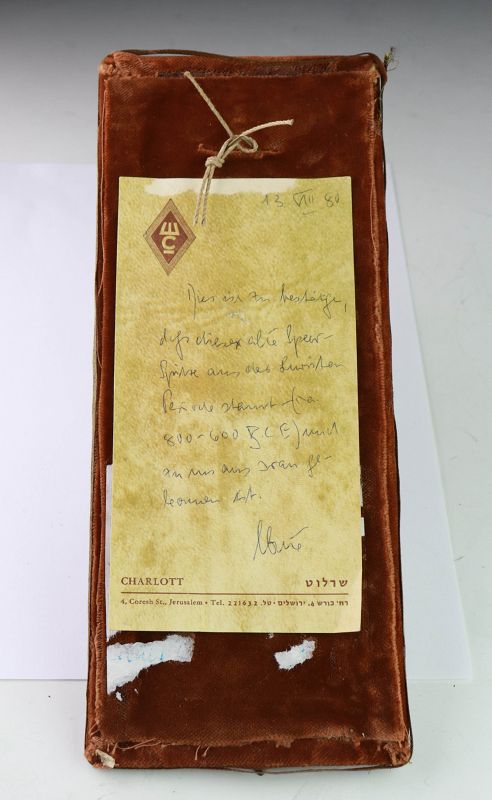 13 VIII 80
Dies ist zu bestätigen,
daß diese alte Speer-
spitze aus der Luristan
Periode stammt (ca
800-600 B.C.E) und
zu uns aus Iran ge-
kommen ist.
CHARLOTT שרלוט
4, Coresh St., Jerusalem • Tel. 221632 רח' כורש 4, ירושלים • טל.